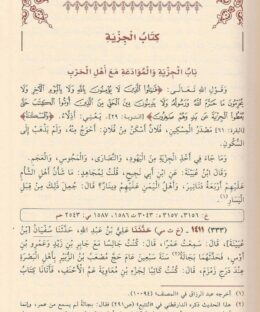 كِتَابُ الْجِزْيَةِ
بَابُ الْجِزْيَةِ وَالْمُوَادَعَةِ مَعَ أَهْلِ الْحَرْبِ
وَقَوْلِ اللهِ تَعَالَى: ﴿قَٰتِلُوا۟ ٱلَّذِينَ لَا يُؤْمِنُونَ بِٱللَّهِ وَلَا بِٱلْيَوْمِ ٱلْءَاخِرِ وَلَا
يُحَرِّمُونَ مَا حَرَّمَ ٱللَّهُ وَرَسُولُهُۥ وَلَا يَدِينُونَ دِينَ ٱلْحَقِّ مِنَ ٱلَّذِينَ أُوتُوا۟ ٱلْكِتَٰبَ حَتَّىٰ
يُعْطُوا۟ ٱلْجِزْيَةَ عَن يَدٍ وَهُمْ صَٰغِرُونَ﴾ [التوبة: ٢٩]. يَعْنِي: أَذِلَّاءُ،
[البقرة: ٦١] مَصْدَرُ الْمِسْكِينِ، فُلَانٌ أَسْكَنُ مِنْ فُلَانٍ: أَحْوَجُ مِنْهُ، وَلَمْ يَذْهَبْ إِلَى
السُّكُونِ.
وَمَا جَاءَ فِي أَخْذِ الْجِزْيَةِ مِنَ الْيَهُودِ، وَالنَّصَارَى، وَالْمَجُوسِ، وَالْعَجَمِ.
وَقَالَ ابْنُ عُيَيْنَةَ: عَنِ ابْنِ أَبِي نَجِيحٍ: قُلْتُ لِمُجَاهِدٍ: مَا شَأْنُ أَهْلِ الشَّأْمِ
عَلَيْهِمْ أَرْبَعَةُ دَنَانِيرَ، وَأَهْلُ الْيَمَنِ عَلَيْهِمْ دِينَارٌ؟ قَالَ: جُعِلَ ذَلِكَ مِنْ قِبَلِ
الْيَسَارِ(١).
حَدَّثَنَا عَلِيُّ بْنُ عَبْدِ اللهِ، حَدَّثَنَا سُفْيَانُ [بْنُ
عُيَيْنَةَ]، قَالَ: سَمِعْتُ عَمْرًا، قَالَ: كُنْتُ جَالِسًا مَعَ جَابِرِ بْنِ زَيْدٍ وَعَمْرِو بْنِ
أَوْسٍ، فَحَدَّثَهُمَا بَجَالَةُ سَنَةَ سَبْعِينَ عَامَ حَجَّ مُصْعَبُ بْنُ الزُّبَيْرِ بِأَهْلِ الْبَصْرَةِ
عِنْدَ دَرَجِ زَمْزَمَ، قَالَ: كُنْتُ كَاتِبًا لِجَزْءِ بْنِ مُعَاوِيَةَ عَمِّ الْأَحْنَفِ، فَأَتَانَا كِتَابُ
(١) أخرجه عبد الرزاق في «المصنف» (١٠٠٩٤).